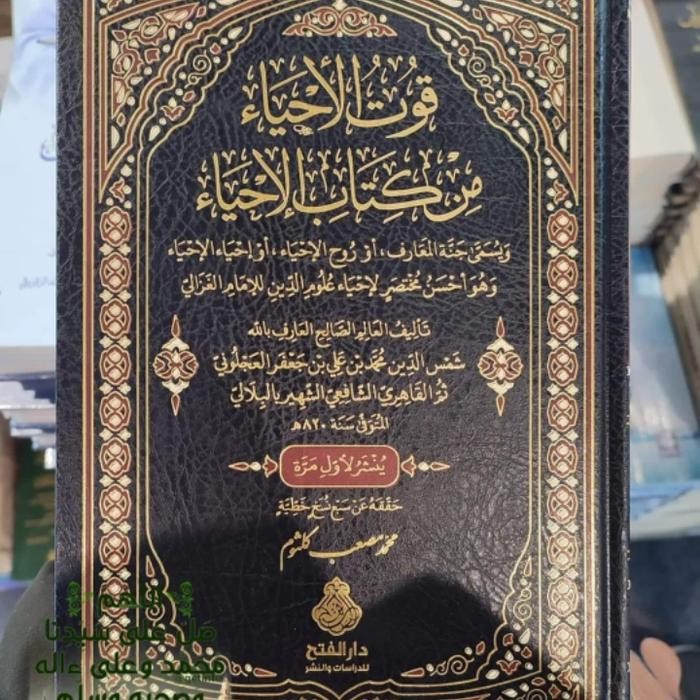 قُوتُ الأَحْيَاء
مِنْ كِتَابِ الإِحْيَاء
وَيُسَمَّىٰ جَنَّةَ المَعَارِف، أَوْ رُوحَ الإِحْيَاء، أَوْ إِحْيَاءَ الإِحْيَاء
وَهُوَ أَحْسَنُ مُخْتَصَرٍ لِإِحْيَاءِ عُلُومِ الدِّينِ لِلإِمَامِ الغَزَالِيّ
تَأْلِيفُ العَالِمِ الصَّالِحِ العَارِفِ بِاللهِ
شَمْسِ الدِّينِ مُحَمَّدِ بْنِ عَلِيِّ بْنِ جَعْفَرٍ العَجْلُونِيِّ
ثُمَّ القَاهِرِيِّ الشَّافِعِيِّ الشَّهِيرِ بِالبِلَالِيِّ
المُتَوَفَّىٰ سَنَةَ ٨٢٠هـ
يُنْشَرُ لِأَوَّلِ مَرَّة
حَقَّقَهُ عَنْ سَبْعِ نُسَخٍ خَطِّيَّةٍ
محمد مصعب كلثوم
دار الفتح
للدراسات والنشر
اللهم
صل على سيدنا
محمد وعلى ءاله
وصحبه وسلم